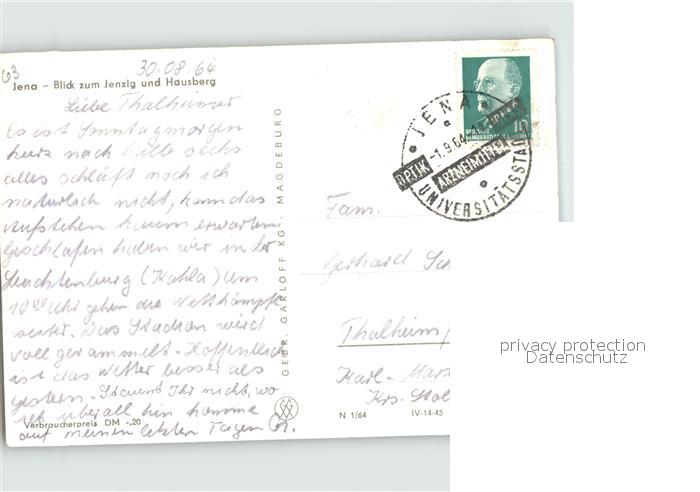 63
30.08.64
Jena – Blick zum Jenzig und Hausberg
Liebe Thalheimer
Es ist Sonntagmorgen
kurz nach halb sechs
alles schläft noch ich
natürlich nicht, kann das
Aufstehen kaum erwarten
Geschlafen haben wir in der
Leuchtenburg (Kahla) um
10 Uhr gehen die Wettkämpfe
weiter. Das Stadion wird
voll gerammelt - Hoffentlich
ist das Wetter besser als
gestern. - Staunt Ihr nicht, wo
ich überall hin komme
auf meinen letzten Tagen
Verbraucherpreis DM -,20
GEBR. GARLOFF KG., MAGDEBURG
JENA
-1.9.64
OPTIK
ARZNEIMITTEL
UNIVERSITÄTSSTADT
10
DEUTSCHE
Fam.
Gerhard
Thalheim/
Karl-Marx
Krs. Stol
N 1/64
IV-14-45
privacy protection
Datenschutz